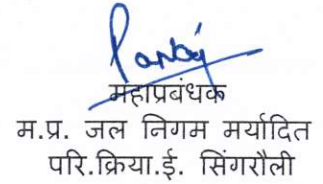 महाप्रबंधक
म.प्र. जल निगम मर्यादित
परि.क्रिया.ई. सिंगरौली